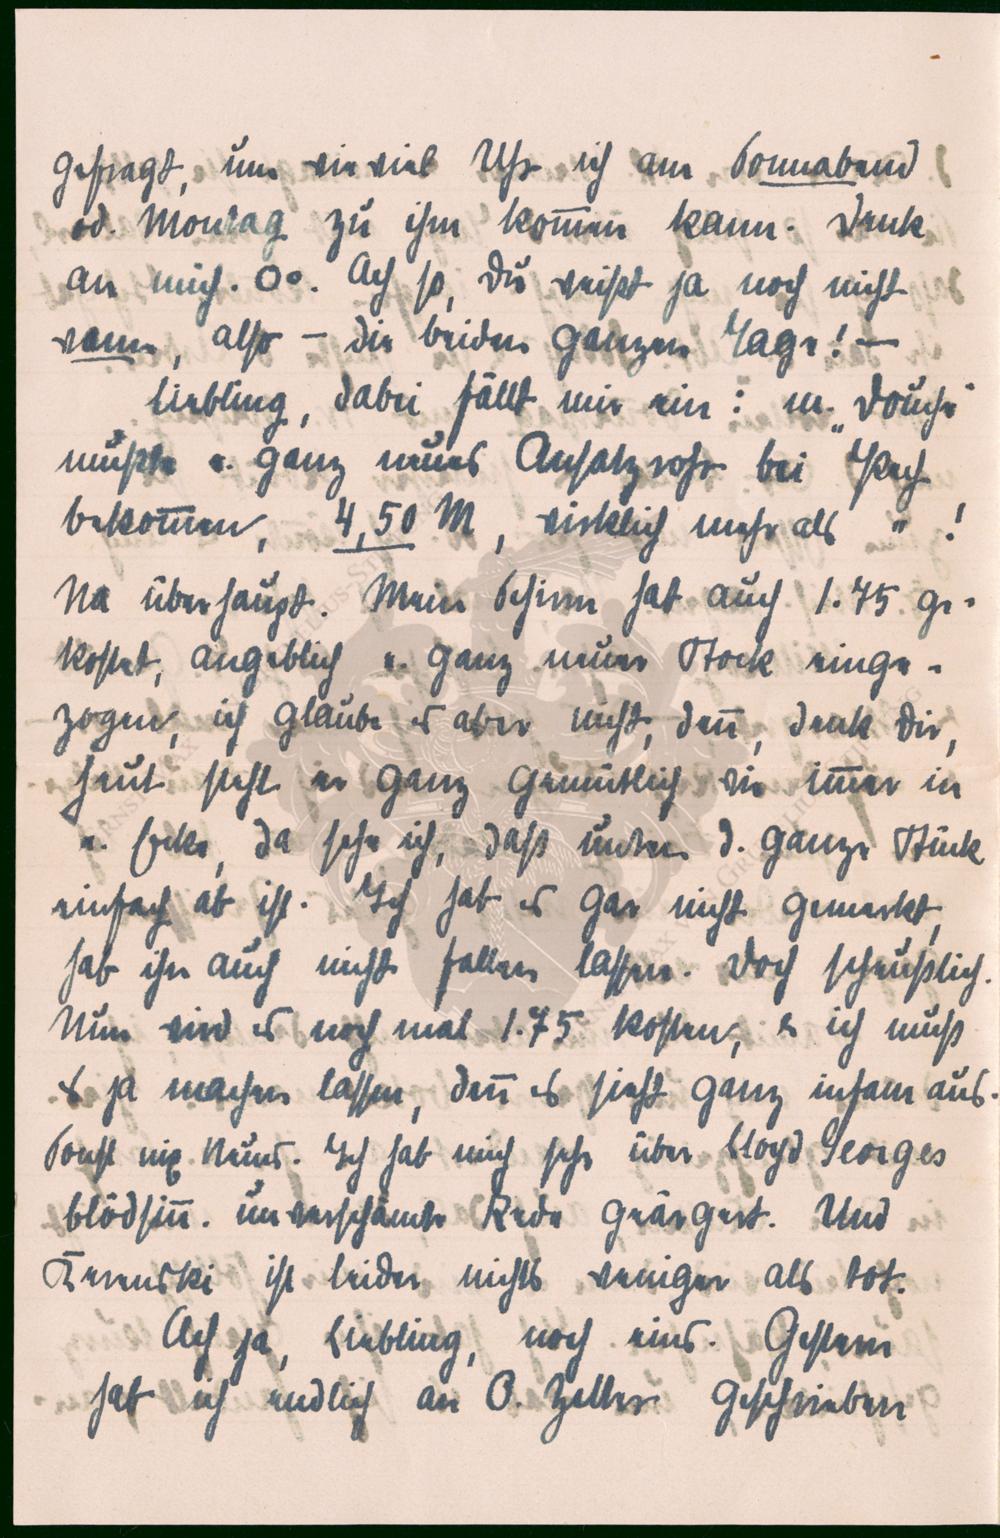 gefragt, um wieviel Uhr ich am Sonnabend
od. Montag zu ihm kom̅en kann. Denk
an mich. Oo. Ach so, Du weißt ja noch nicht
wann, also – die beiden ganzen Tage! –
Liebling, dabei fällt mir ein: m. „Douche"
mußte e. ganz neues Ansatzrohr bei Pech
bekom̅en, 4,50 M, wirklich mehr als " !
Na überhaupt. Mein Schirm hat auch 1.75 ge-
kostet, angeblich e. ganz neuer Stock einge-
zogen, ich glaube es aber nicht, den̅, denk Dir,
heut steht er ganz gemütlich wie im̅er in
e. Ecke, da sehe ich, daß unten d. ganze Stück
einfach ab ist. Ich hab es gar nicht gemerkt,
hab ihn auch nicht fallen lassen. Doch scheußlich.
Nun wird es noch mal 1.75 kosten, & ich muß
es ja machen lassen, den̅ es sieht ganz infam aus.
Sonst nix Neues. Ich hab mich sehr über Lloyd Georges
blödsin̅. unverschämte Rede geärgert. Und
Kerenski ist leider nichts weniger als tot.
Ach ja, Liebling, noch eins. Gestern
hab ich endlich an O. Zeller geschrieben